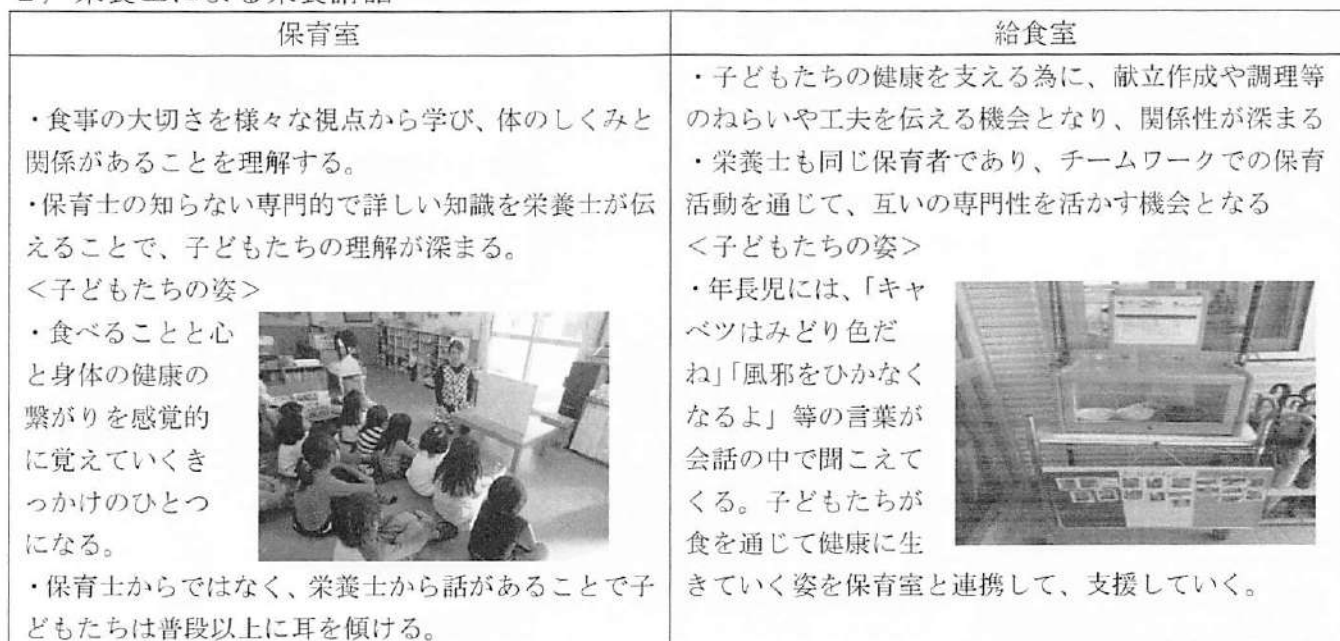 保育室
・食事の大切さを様々な視点から学び、体のしくみと
関係があることを理解する。
・保育士の知らない専門的で詳しい知識を栄養士が伝
えることで、子どもたちの理解が深まる。
<子どもたちの姿>
・食べることと心
と身体の健康の
繋がりを感覚的
に覚えていくき
っかけのひとつ
になる。
・保育士からではなく、栄養士から話があることで子
どもたちは普段以上に耳を傾ける。
給食室
・子どもたちの健康を支える為に、献立作成や調理等
のねらいや工夫を伝える機会となり、関係性が深まる
・栄養士も同じ保育者であり、チームワークでの保育
活動を通じて、互いの専門性を活かす機会となる
<子どもたちの姿>
・年長児には、「キャ
ベツはみどり色だ
ね」「風邪をひかなく
なるよ」等の言葉が
会話の中で聞こえて
くる。子どもたちが
食を通じて健康に生
きていく姿を保育室と連携して、支援していく。